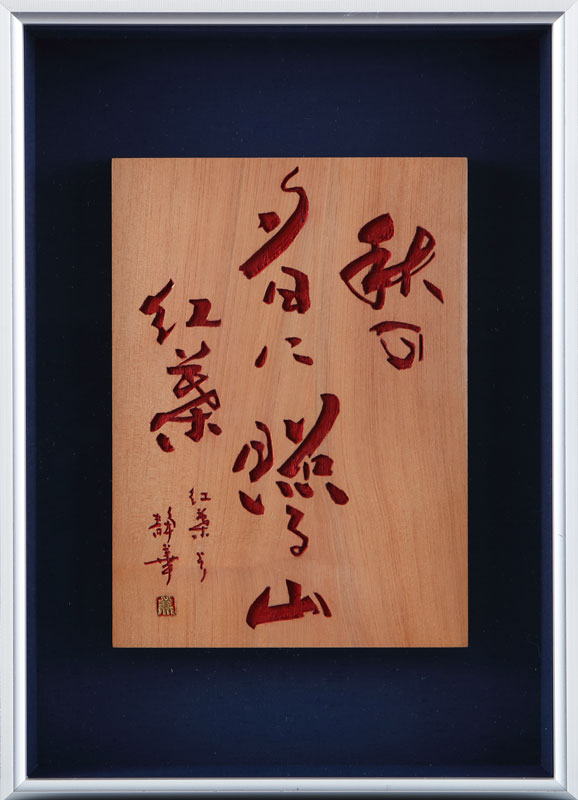 秋の
夕日に照る山
紅葉
紅葉より
静華